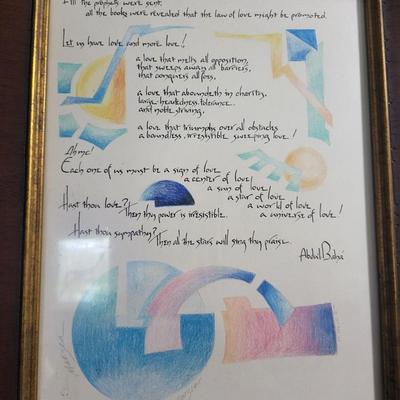 All the prophets were sent,
all the books were revealed that the law of love might be promoted.
Let us have love and more love!
a love that melts all opposition,
that sweeps away all barriers,
that conquers all foes,
a love that aboundeth in charity,
large-heartedness, tolerance
and noble striving,
a love that triumphs over all obstacles
a boundless, irresistible, sweeping love!
Ah me!
Each one of us must be a sign of love
a center of love
a sun of love
a star of love
Hast thou love? Then thy power is irresistible.
a world of love
a universe of love!
Hast thou sympathy? Then all the stars will sing thy praise.
Abdul Bahá